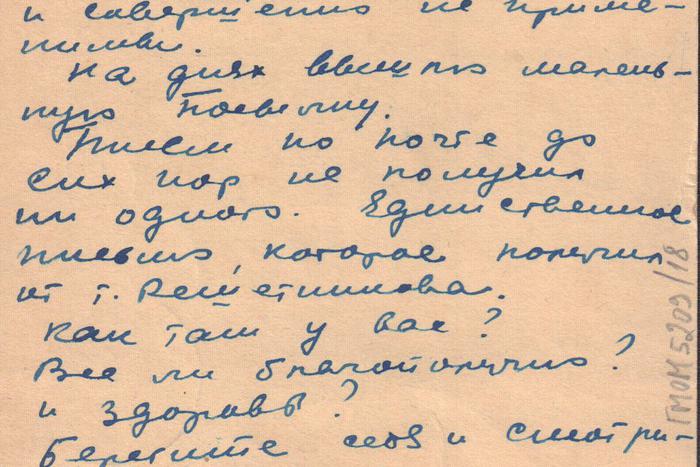 и совершенно не приме-
нимы.
На днях вышлю малень-
кую посылку.
Писем по почте до
сих пор не получил
ни одного. Единственное
письмо, которое получил
от т. Решетникова.
Как там у вас?
Все ли благополучно?
и здоровы?
Берегите себя и смотри-
ГМОМ 5209/18